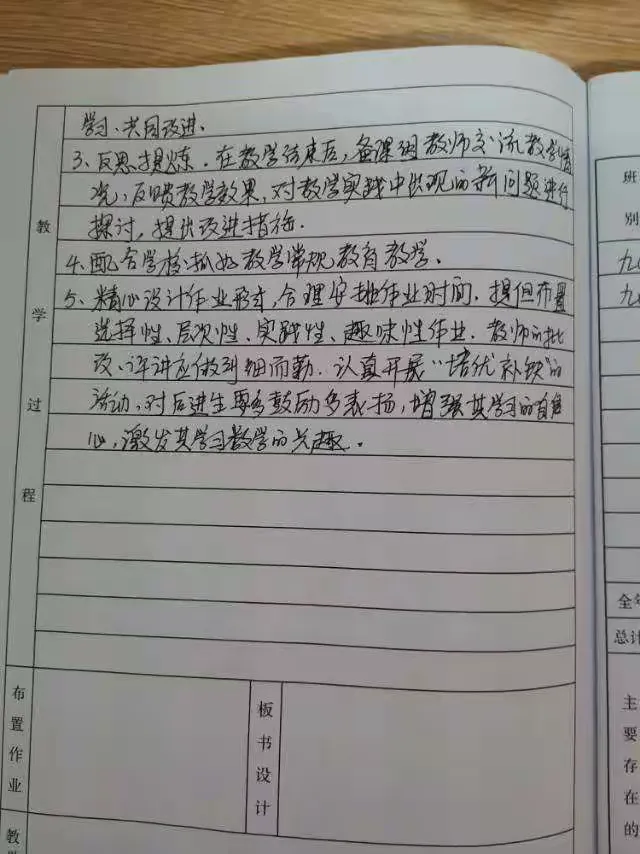 学习、共同改进、
3、反思提炼．在教学结束后，备课组教师交流教学情
况，反馈教学效果，对教学实践中出现的新问题进行
探讨，提出改进措施．
4、配合学校抓好教学常规教育教学。
5、精心设计作业形式，合理安排作业时间．提倡布置
选择性、层次性、实践性、趣味性作业．教师的批
改、评讲应做到细而勤．认真开展“培优补缺”的
活动，对后进生要多鼓励多表扬，增强其学习的自信
心，激发其学习数学的兴趣．
教学过程
布置作业
板书设计
教
班别
九
九
全年
总计
主要存在的